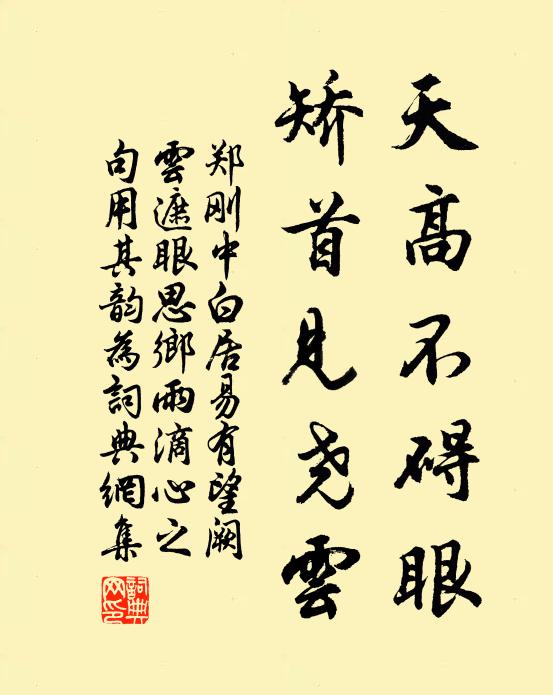 天高不碍眼
矫首見尧雲
郑刚中白居易有望阙
雲遮眼思鄉雨滴心之
句用其韵為詞典網集
詞典网印